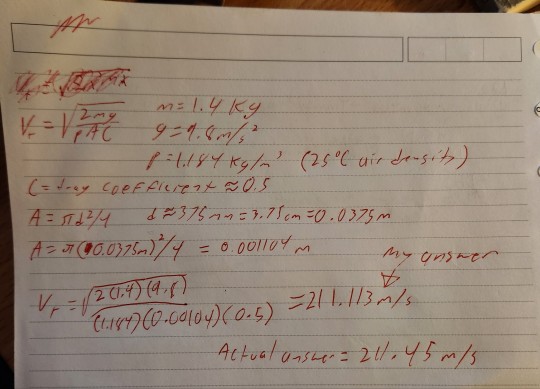 Vᵣ = √(2mg/ρAC) m = 1.4 kg
g = 9.8 m/s²
ρ = 1.184 kg/m³ (25°C air density)
C = drag coefficient ≈ 0.5
A = πd²/4 d ≈ 37.5 mm = 3.75 cm = 0.0375 m
A = π(0.0375m)²/4 = 0.001104 m
my answer
Vᵣ = √(2(1.4)(9.8)/(1.184)(0.00104)(0.5)) = 211.113 m/s
Actual answer = 211.45 m/s